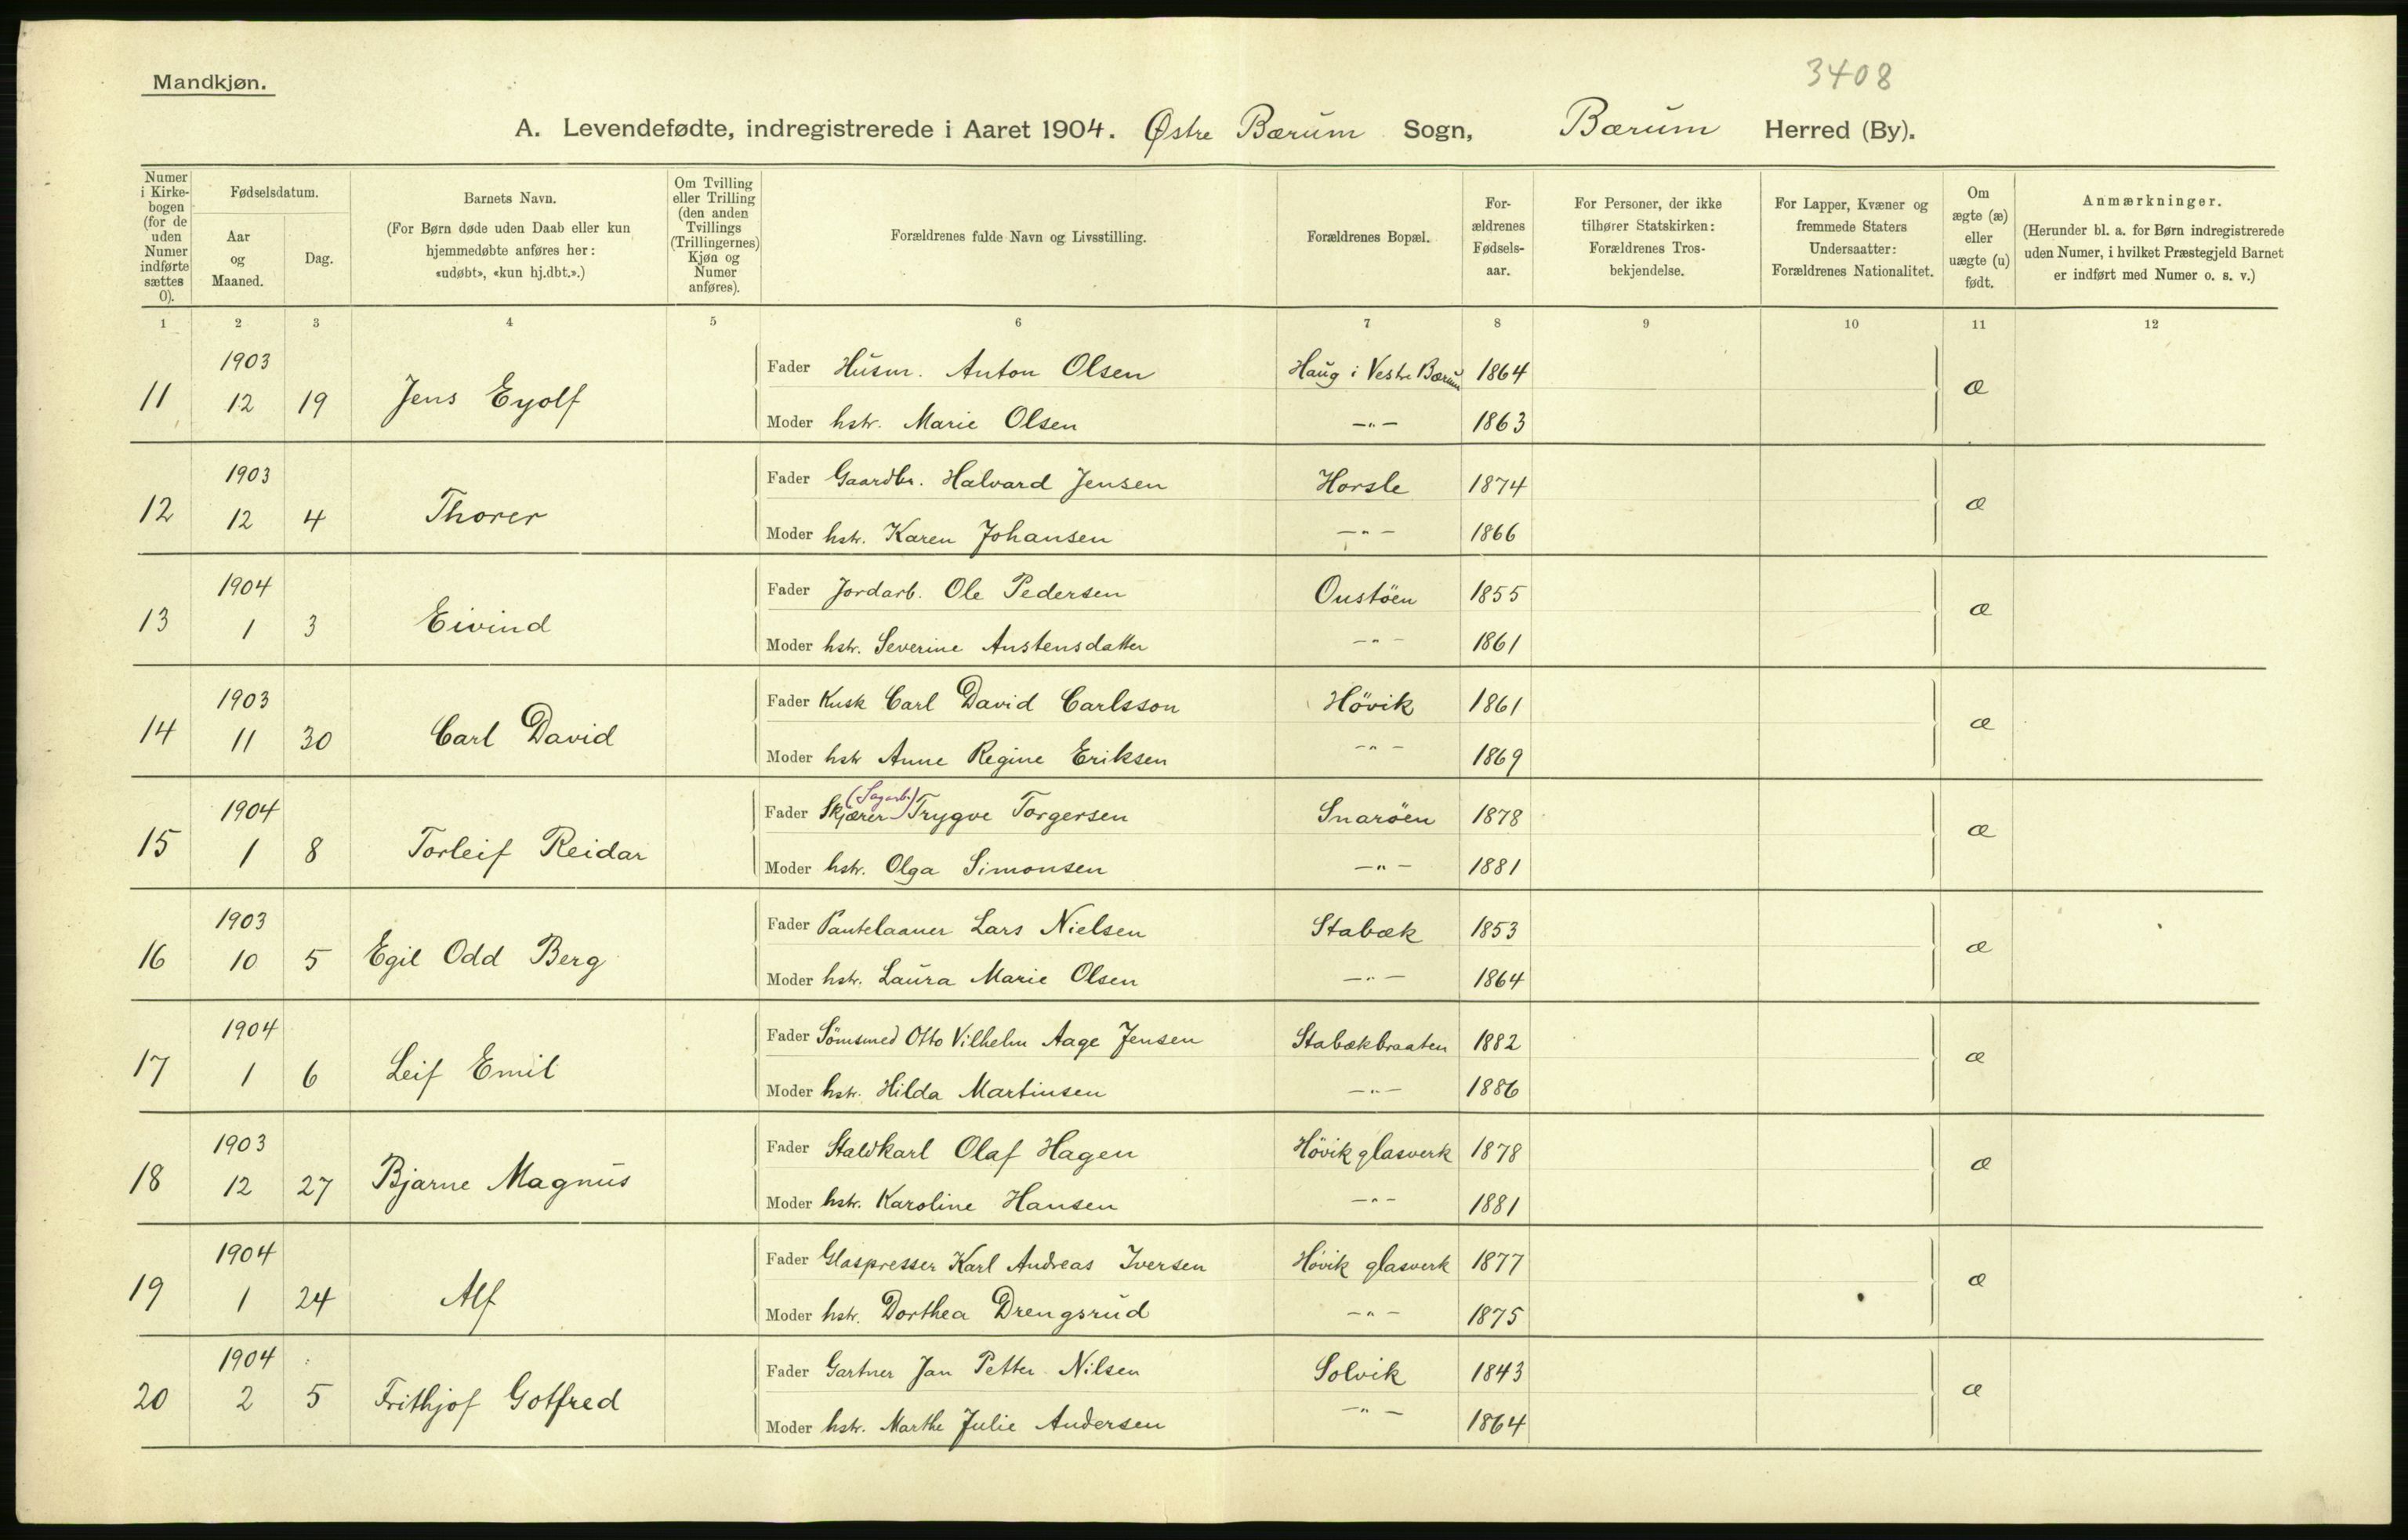 3408
Mandkjøn.
A. Levendefødte, indregistrerede i Aaret 1904. Østre Bærum Sogn, Bærum Herred (By).
Numer i Kirke- bogen (for de uden Numer indførte sættes 0).
Fødselsdatum.
Aar og Maaned.
Dag.
Barnets Navn.
(For Børn døde uden Daab eller kun hjemmedøbte anføres her: «udøbt», «kun hj.dbt.».)
Om Tvilling eller Trilling (den anden Tvillings (Trillingernes) Kjøn og Numer anføres).
Forældrenes fulde Navn og Livsstilling.
Forældrenes Bopæl.
For- ældrenes Fødsels- aar.
For Personer, der ikke tilhører Statskirken: Forældrenes Tros- bekjendelse.
For Lapper, Kvæner og fremmede Staters Undersaatter: Forældrenes Nationalitet.
Om ægte (æ) eller uægte (u) født.
Anmærkninger.
(Herunder bl. a. for Børn indregistrerede uden Numer, i hvilket Præstegjeld Barnet er indført med Numer o. s. v.)
1 2 3 4 5 6 7 8 9 10 11 12
11 1903 12 19 Jens Eyolf Fader Husm. Anton Olsen Haug i Vestre Bærum 1864 æ
Moder hstr. Marie Olsen —"— 1863
12 1903 12 4 Thorer Fader Gaardbr. Halvard Jensen Horsle 1874 æ
Moder hstr. Karen Johansen —"— 1866
13 1904 1 3 Eivind Fader Jordarb. Ole Pedersen Oustöen 1855 æ
Moder hstr. Severine Austensdatter —"— 1861
14 1903 11 30 Carl David Fader Kusk Carl David Carlsson Hövik 1861 æ
Moder hstr Anne Regine Eriksen —"— 1869
15 1904 1 8 Torleif Reidar Fader Skjærer (Sagarb.) Trygve Torgersen Snaröen 1878 æ
Moder hstr. Olga Simonsen —"— 1881
16 1903 10 5 Egil Odd Berg Fader Pantelaaner Lars Nielsen Stabæk 1853 æ
Moder hstr. Laura Marie Olsen —"— 1864
17 1904 1 6 Leif Emil Fader Sömsmed Otto Vilhelm Aage Jensen Stabækbraaten 1882 æ
Moder hstr. Hilda Martinsen —"— 1886
18 1903 12 27 Bjarne Magnus Fader Staldkarl Olaf Hagen Hövik glasverk 1878 æ
Moder hstr. Karoline Hansen —"— 1881
19 1904 1 24 Alf Fader Glaspresser Karl Andreas Iversen Hövik glasverk 1877 æ
Moder hstr. Dorthea Drengsrud —"— 1875
20 1904 2 5 Frithjof Gotfred Fader Gartner Jan Petter Nilsen Solvik 1843 æ
Moder hstr. Marthe Julie Andersen —"— 1864